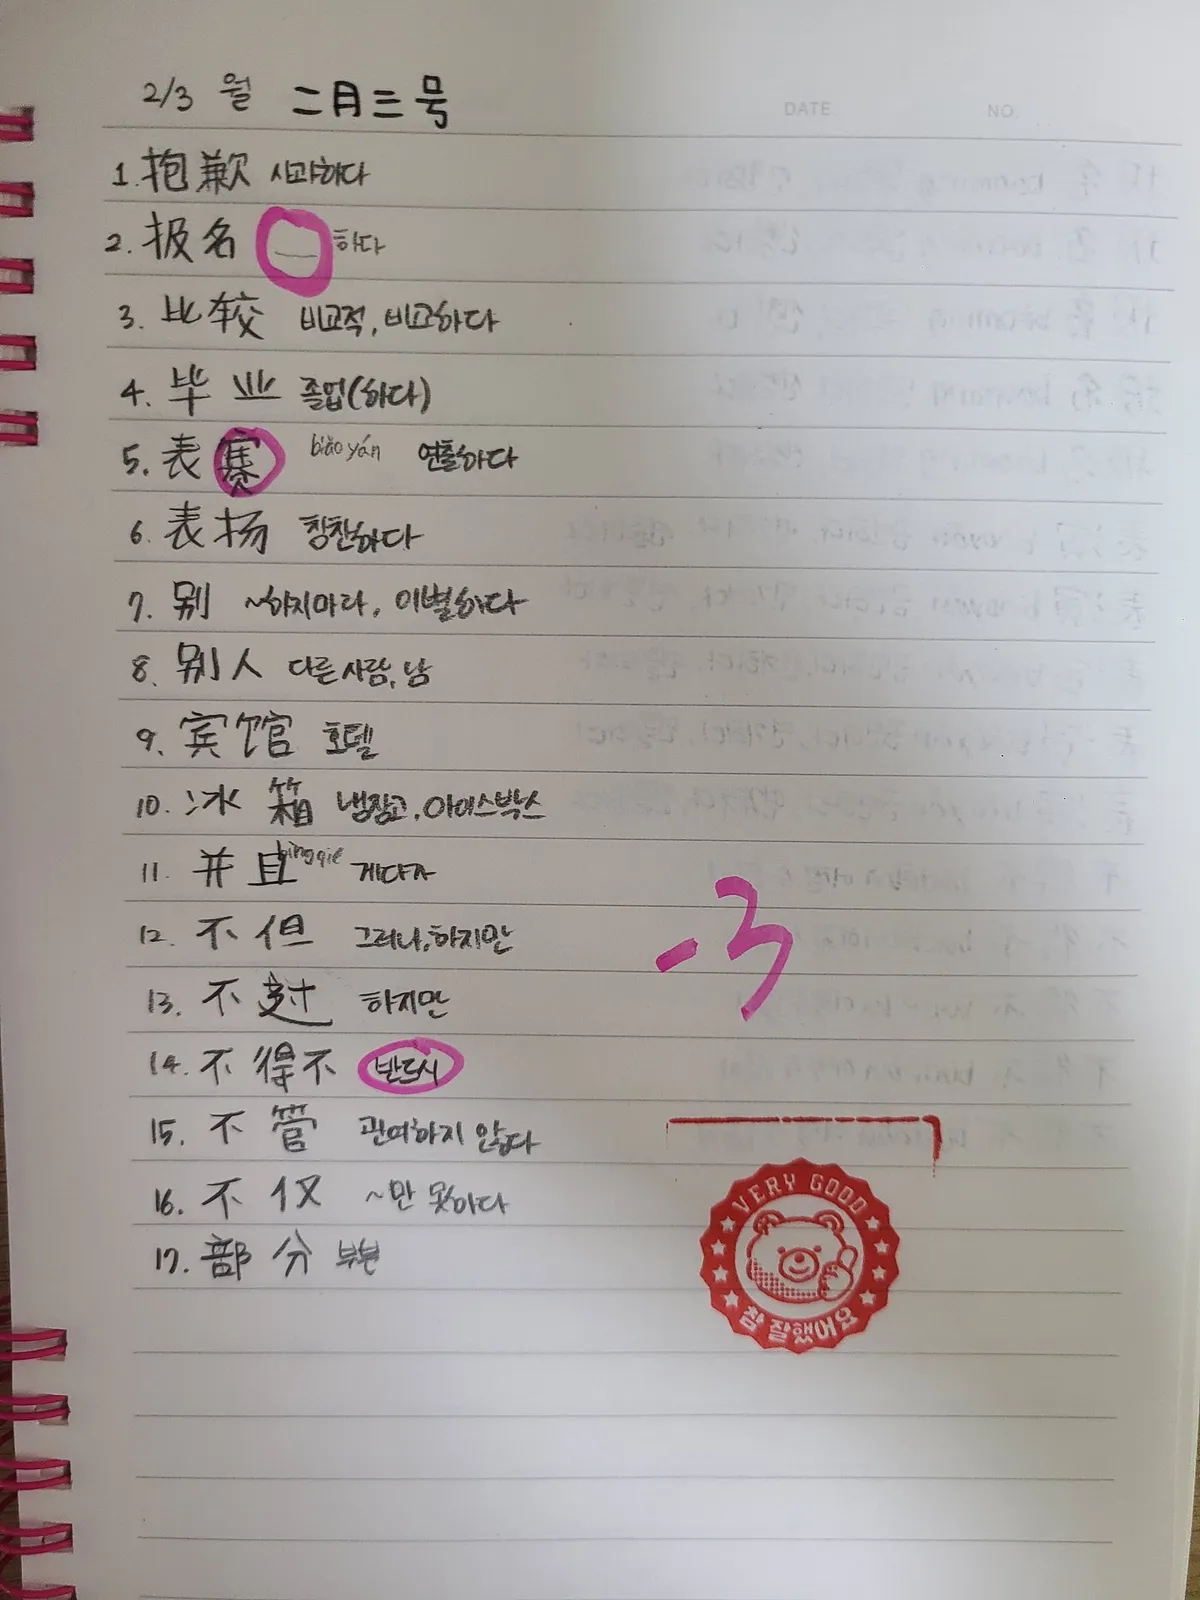 2/3 월 二月三号
DATE
NO.
1. 抱歉 사과하다
2. 报名 __하다
3. 比较 비교적, 비교하다
4. 毕业 졸업(하다)
5. 表 biǎo yán 연출하다
6. 表扬 칭찬하다
7. 别 ~하지마라, 이별하다
8. 别人 다른사람, 남
9. 宾馆 호텔
10. 冰箱 냉장고, 아이스박스
11. 并且 bìng qiě 게다가
12. 不但 그러나, 하지만
13. 不过 하지만
14. 不得不 반드시
15. 不管 관여하지 않다
16. 不仅 ~만 못하다
17. 部分 부분
-3
VERY GOOD
참 잘했어요